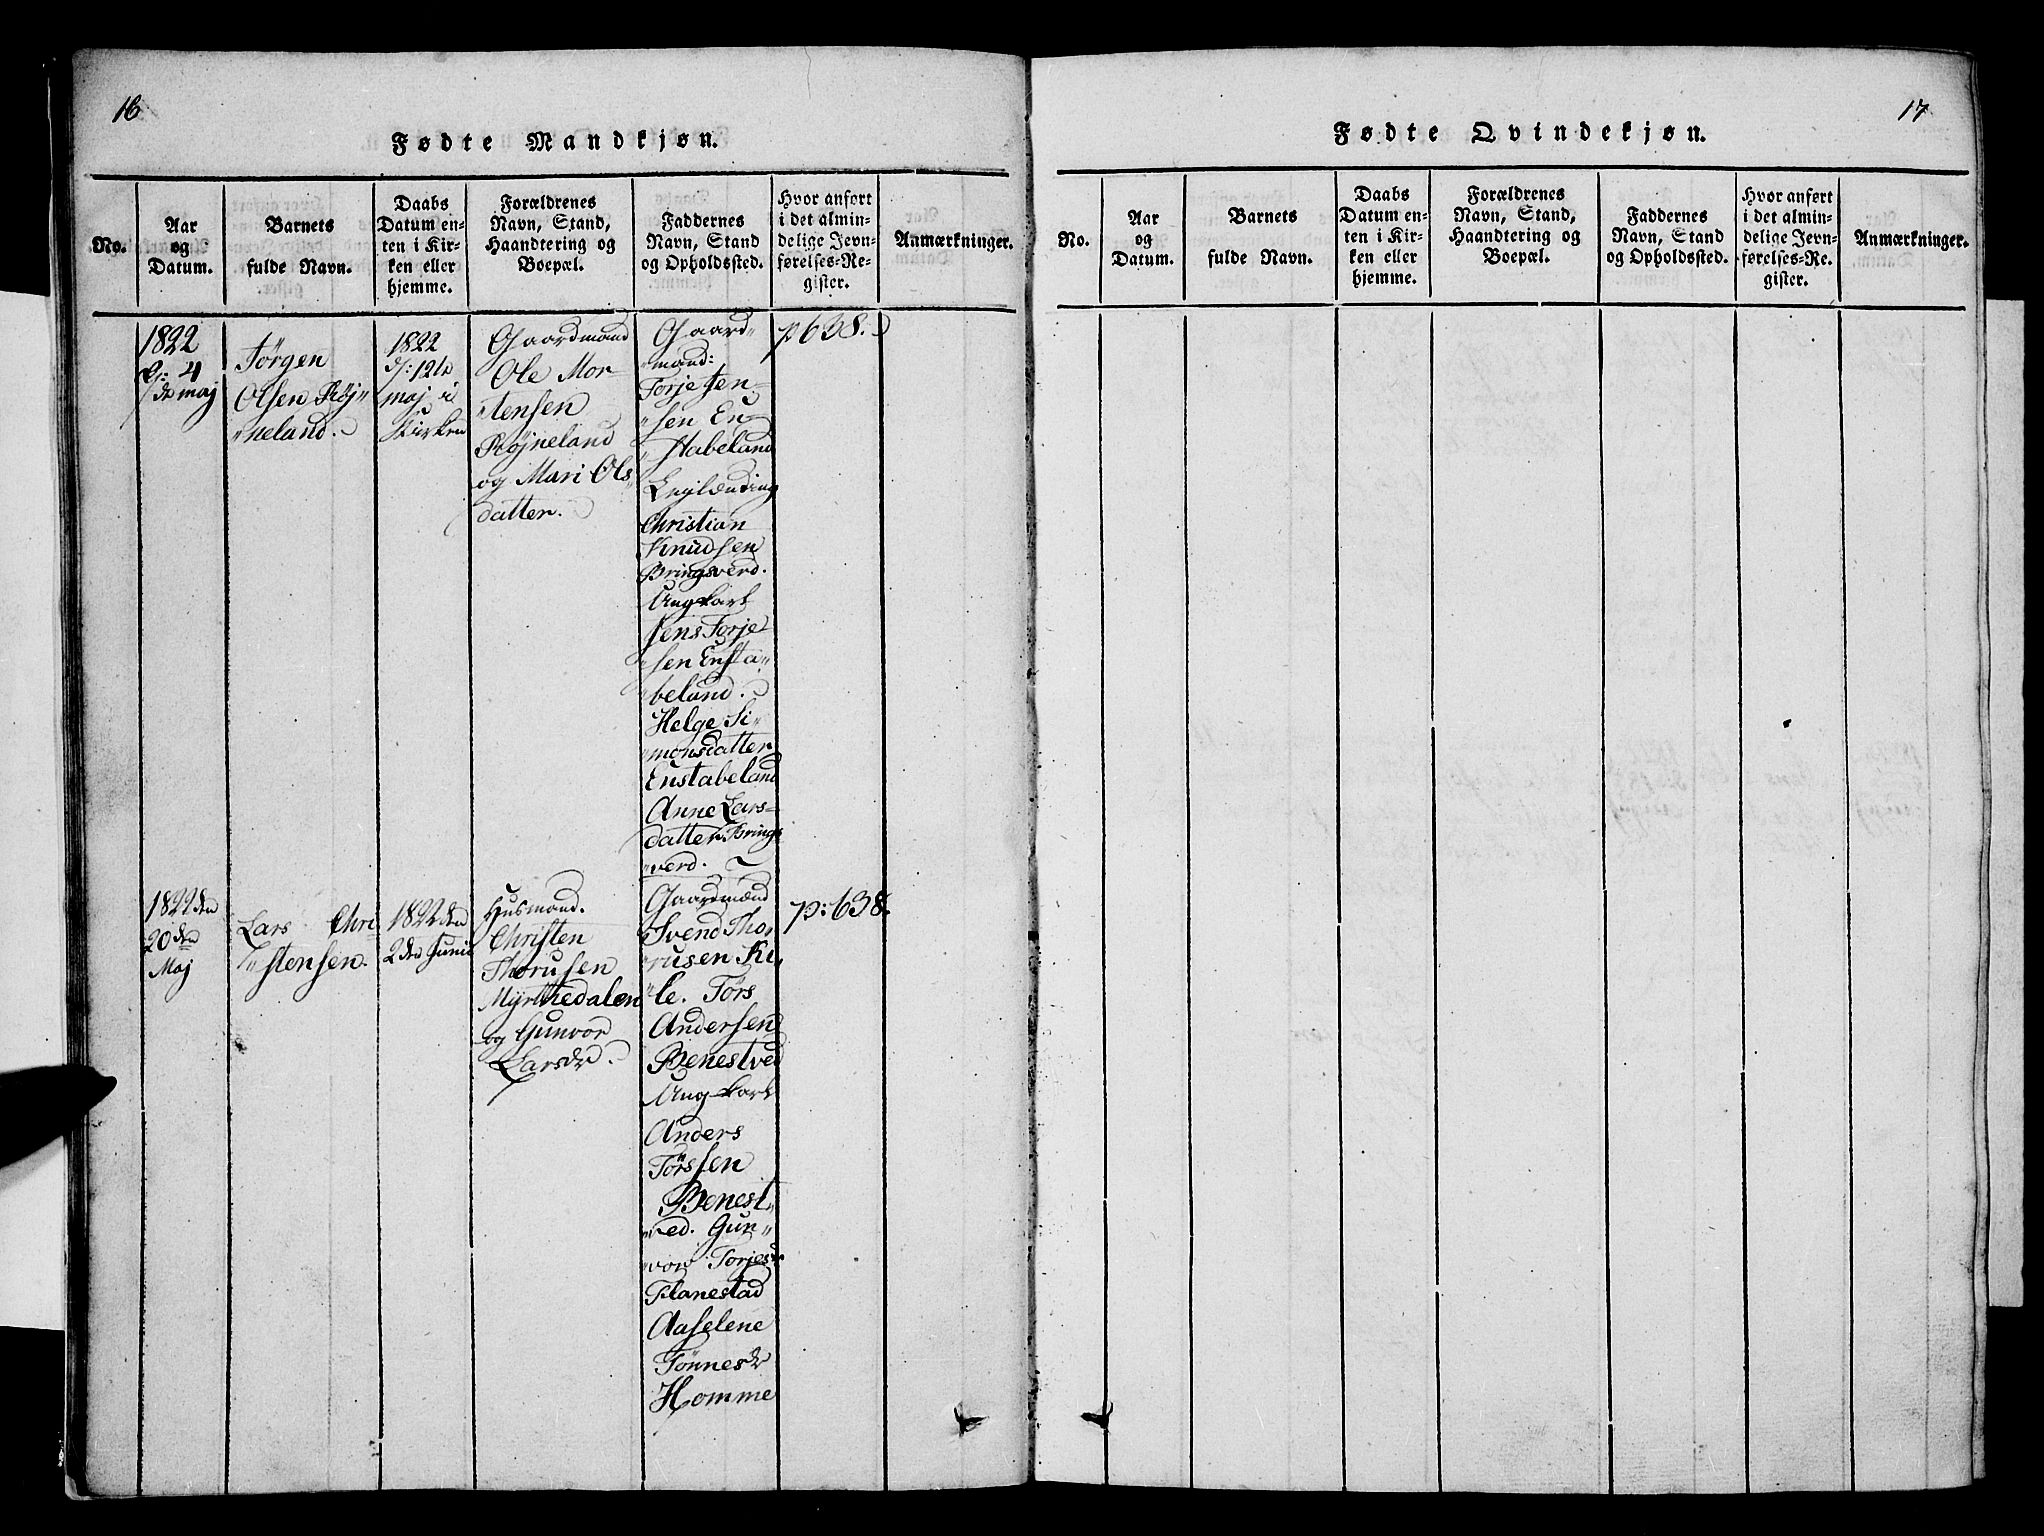 16
Fødte Mandkjøn.
No.
Aar
og
Datum.
Barnets
fulde Navn.
Daabs
Datum en-
ten i Kir-
ken eller
hjemme.
Forældrenes
Navn, Stand,
Haandtering og
Boepæl.
Faddernes
Navn, Stand
og Opholdssted.
Hvor anført
i det almin-
delige Jevn-
førelses-Re-
gister.
Anmærkninger.
1822
4
maj
Jørgen
Olsen Røj„
„neland.
1822
d: 12te
maj i
Kirken
Gaardmand
Ole Mor„
„tensen
Røjneland
og Mari Ols„
datter.
Gaard„
„mand:
Torje Jen„
„sen En„
„stabeland
Christian
Knudsen
Bringsverd.
Ung karl
Jens Torje„
„sen Ensta„
„beland.
Helge Si„
„monsdatter
Enstabeland
Anne Lars„
datter Brings„
„verd.
p 638.
1822 den
20den
Maj
Lars Chri„
„stensen.
1822 den
2den Junii
Husmand.
Christen
Thorusen
Myrthedalen
og Gunvor
Larsdr.
Gaardmænd
Svend Tho„
„rusen Ki„
„le. Törs
Andersen
Benestved
Ung karl
Anders
Törssen
Benest„
„ved. Gun„
„vor Torjesdr
Flanestad
Aaselene
Tönnesdr
Homme
p: 638.
17
Fødte Qvindekjøn.
No.
Aar
og
Datum.
Barnets
fulde Navn.
Daabs
Datum en-
ten i Kir-
ken eller
hjemme.
Forældrenes
Navn, Stand,
Haandtering og
Boepæl.
Faddernes
Navn, Stand
og Opholdssted.
Hvor anført
i det almin-
delige Jevn-
førelses-Re-
gister.
Anmærkninger.